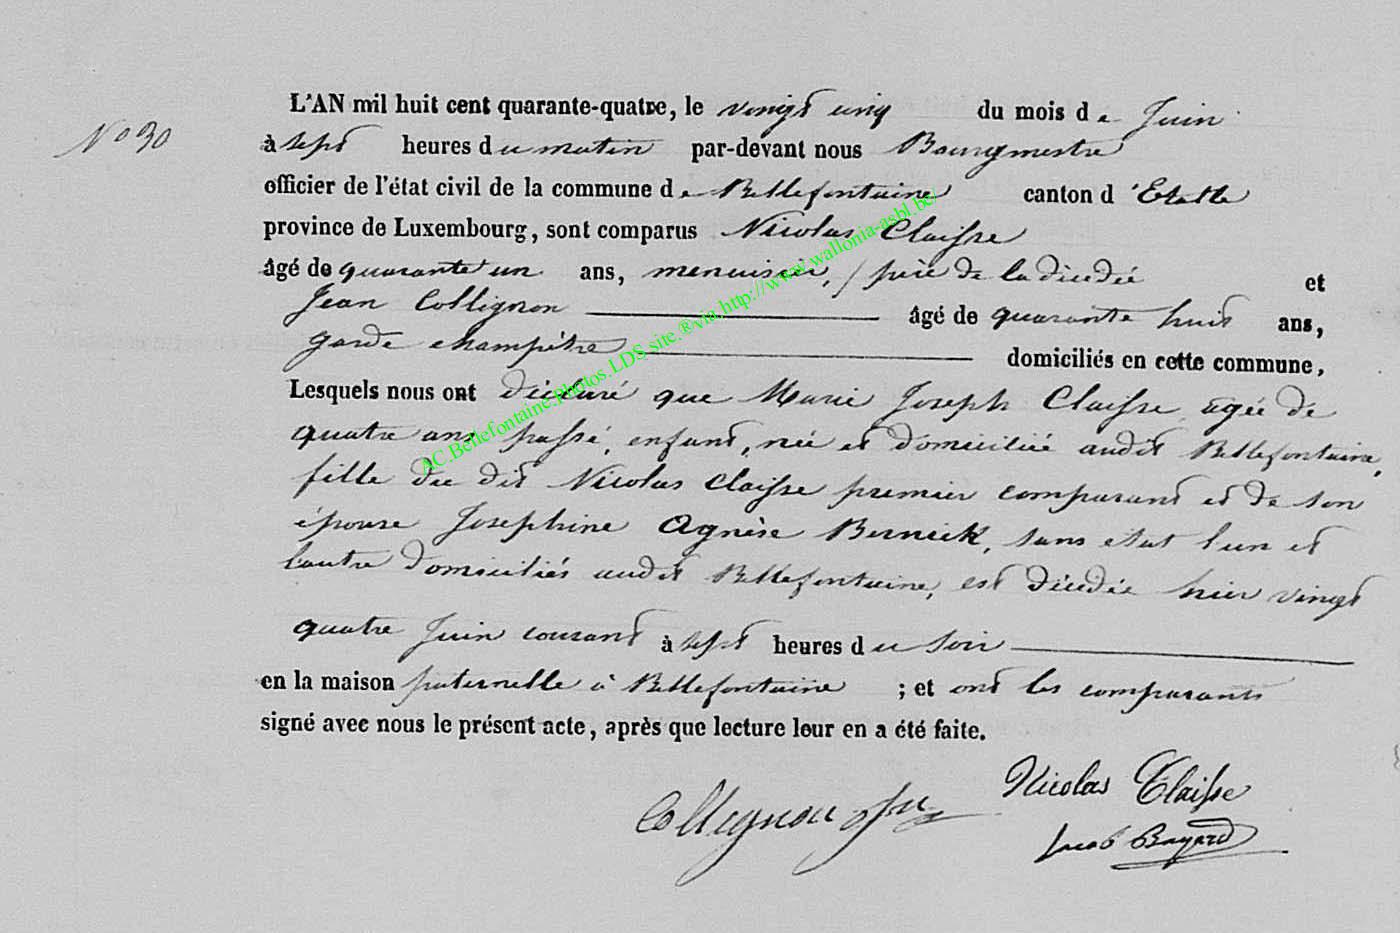 L'AN mil huit cent quarante-quatre, le vingt cinq du mois de Juin
N° 30
à sept heures du matin par-devant nous Bourgmestre
officier de l'état civil de la commune de Bellefontaine canton d'Etalle
province de Luxembourg, sont comparus Nicolas Claisse
âgé de quarante un ans, menuisier, père de la décédée et
Jean Collignon âgé de quarante huit ans,
garde champêtre domiciliés en cette commune.
Lesquels nous ont déclaré que Marie Joseph Claisse âgée de
quatre ans passé, enfant, née et domiciliée audit Bellefontaine,
fille du dit Nicolas Claisse premier comparant et de son
épouse Josephine Agnèse Bernick, sans etat l'un et
l'autre domiciliés audit Bellefontaine, est décédée hier vingt
quatre Juin courant à sept heures du soir
en la maison paternelle à Bellefontaine ; et ont les comparants
signé avec nous le présent acte, après que lecture leur en a été faite.
Nicolas Claisse
Collignon
Jacob Bayard
AC.Bellefontaine.Photos.LDS.site.®via.http://www.wallonia-asbl.be/